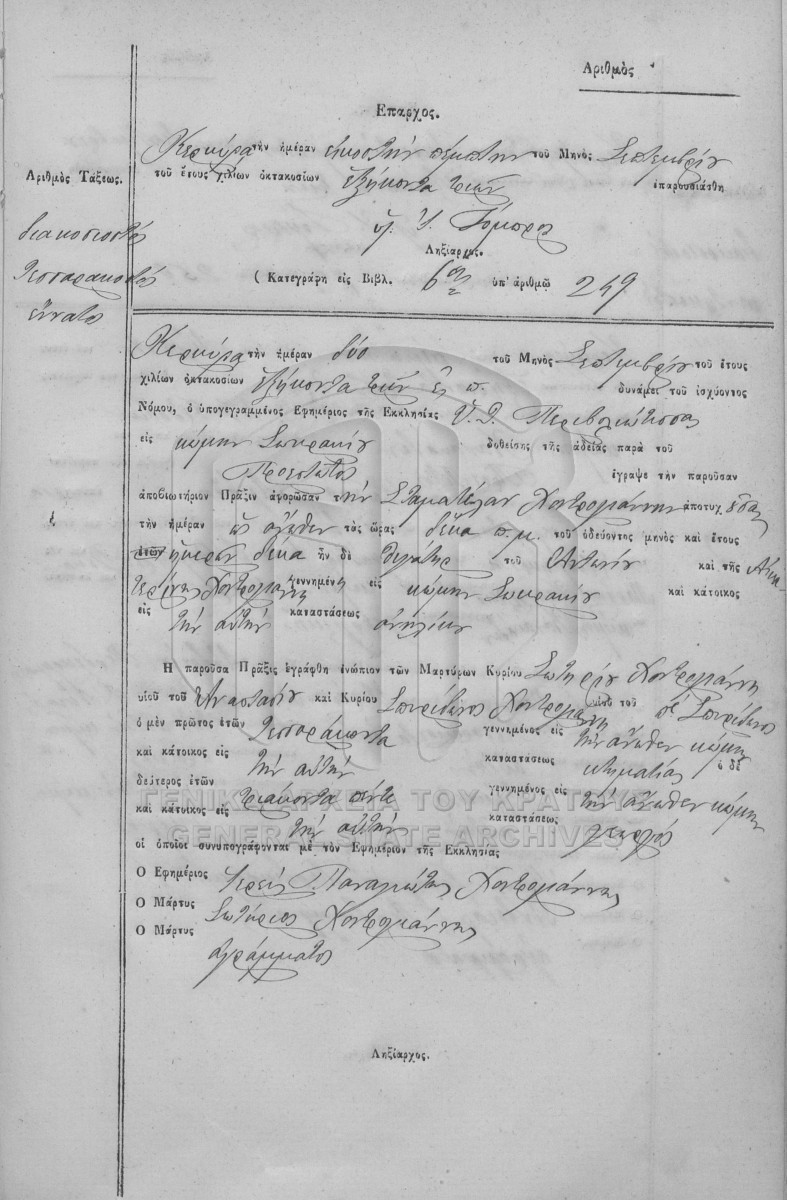 Αριθμὸς
Επαρχος.
Κερκύρα τὴν ἡμέραν εἰκοστὴν πέμπτην τοῦ Μηνὸς Σεπτεμβρίου
Αριθμὸς Τάξεως.
τοῦ ἔτους χιλίων ὀκτακοσίων ἑξήκοντα τριῶν ἐπαρουσιάσθη
διακοσιοστὸς
τεσσαρακοστὸς
ἔννατος
Ληξίαρχος.
( Κατεγράφη εἰς Βιβλ. 6ον ὑπ' ἀριθμῷ 249
Κερκύρα τὴν ἡμέραν δύο τοῦ Μηνὸς Σεπτεμβρίου τοῦ ἔτους
χιλίων ὀκτακοσίων ἑξήκοντα τριῶν ἔ. π. δυνάμει τοῦ ἰσχύοντος
Νόμου, ὁ ὑπογεγραμμένος Εφημέριος τῆς Εκκλησίας Υ. Θ. Περιβολιώτισσας
εἰς κώμην Σωκρακίου δοθείσης τῆς ἀδείας παρὰ τοῦ
Προεστῶτος ἔγραψε τὴν παροῦσαν
ἀποβιωτήριον Πρᾶξιν ἀφορῶσαν τὴν Σταματέλαν Χοντρογιάννη ἀποτυχοῦσαν
τὴν ἡμέραν ὡς ἄνωθεν τὰς ὥρας δέκα π. μ. τοῦ ὁδεύοντος μηνὸς καὶ ἔτους
ἐτῶν ἡμερῶν δέκα ἦν δὲ θυγάτηρ τοῦ Ἀντωνίου καὶ τῆς Αἰκα-
τερίνης Χοντρογιάννη γεννημένη εἰς κώμην Σωκρακίου καὶ κάτοικος
εἰς τὴν αὐτὴν καταστάσεως ἀνηλίκου
Η παροῦσα Πρᾶξις ἐγράφθη ἐνώπιον τῶν Μαρτύρων Κυρίου Σωτηρίου Χοντρογιάννη
υἱοῦ τοῦ Ἀναστασίου καὶ Κυρίου Σπυρίδωνος Χοντρογιάννη υἱοῦ τοῦ πὲ Σπυρίδωνος
ὁ μὲν πρῶτος ἐτῶν τεσσαράκοντα γεννημένος εἰς τὴν ἄνωθεν κώμην
καὶ κάτοικος εἰς τὴν αὐτὴν καταστάσεως κτηματίας ὁ δὲ
δεύτερος ἐτῶν τριάκοντα πέντε γεννημένος εἰς τὴν ἄνωθεν κώμην
καὶ κάτοικος εἰς τὴν αὐτὴν καταστάσεως γεωργὸς
ΓΕΝΙΚΑ ΑΡΧΕΙΑ ΤΟΥ ΚΡΑΤΟΥΣ
GENERAL STATE ARCHIVES
οἱ ὁποῖοι συνυπογράφονται μὲ τὸν Εφημέριον τῆς Εκκλησίας
Ο Εφημέριος Ἱερεὺς Παναγιώτης Χοντρογιάννης
Ο Μάρτυς Σωτήριος Χοντρογιάννης
Ο Μάρτυς ἀγράμματος
Ληξίαρχος.